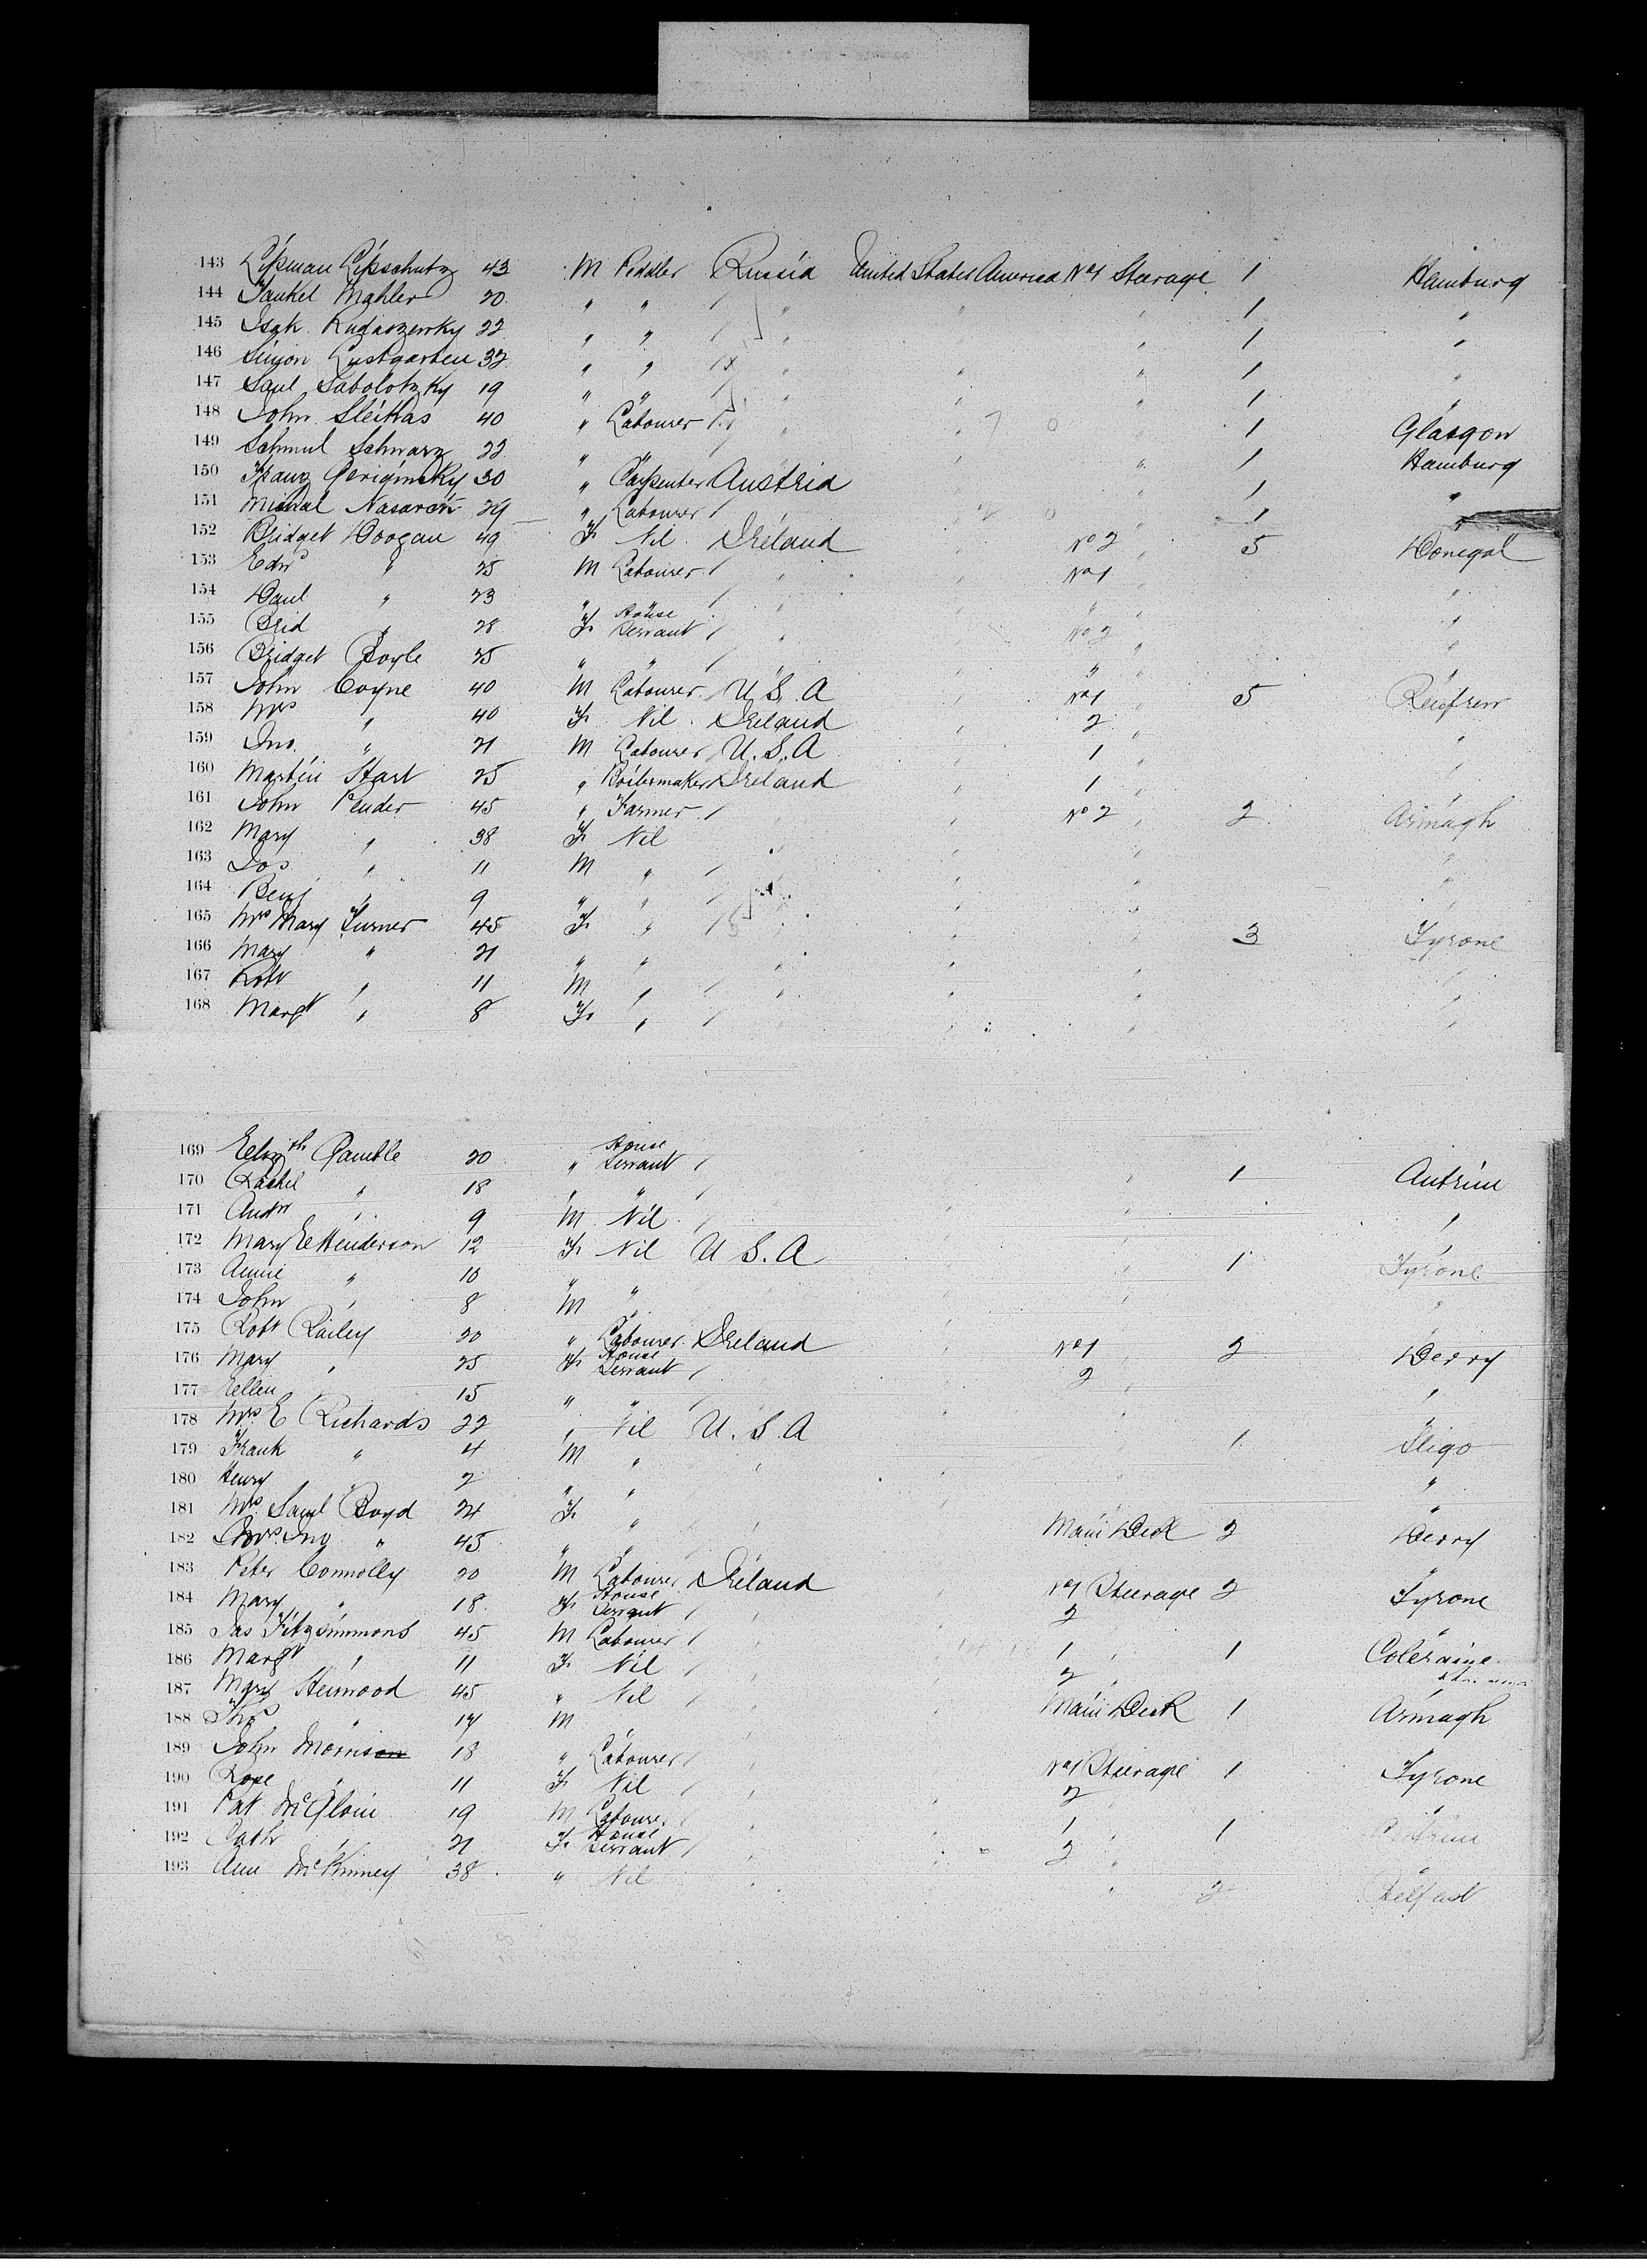 143 Lipman Lipschutz 43 M Peddler Russia United States America No 1 Steerage 1 Hamburg
144 Jankel Mahler 20 " " / " " " 1 "
145 Isak Rudaszewky 22 " " / " " 1 "
146 Simon Lustgarten 32 " " / " " " 1 "
147 Saul Sabolotzky 19 " " / " " " 1 "
148 John Sleikas 40 " Labourer / " " " 1 Glasgow
149 Schmul Schwarz 22 " " / " " " 1 Hamburg
150 Franz 30 " Carpenter Austria " 1 "
151 Michal 29 " Labourer / " " 1 "
152 Bridget Doogan 49 F Nil Ireland " No 2 " 5 Donegal
153 Edwd " 25 M Labourer / " " No 1 " "
154 Danl " 23 " " / " " " " "
155 Brid " 28 F House Servant / " " No 2 " "
156 Bridget Boyle 25 " " / " " " "
157 John Coyne 40 M Labourer U.S.A " No 1 " 5 Renfrew
158 Mrs " 40 F Nil Ireland " 2 " "
159 Jno " 21 M Labourer U.S.A " 1 " "
160 Martin Hart 25 " Boilermaker Ireland " 1 " "
161 John Pender 45 " Farmer / " " No 2 " 2 Armagh
162 Mary " 38 F Nil " " " "
163 Jos " 11 M " / " " " "
164 Benj " 9 " " / " " " "
165 Mrs Mary Turner 45 F " / " " " 3 Tyrone
166 Mary " 21 " " " " " "
167 Robt " 11 M " / " " " "
168 Margt " 8 F " / " " " "
169 Elizth Gamble 20 " House Servant / " 1 Antrim
170 Rachel " 18 " " / " " "
171 Andw " 9 M Nil / " " "
172 Mary E Henderson 12 F Nil U S. A " 1 Tyrone
173 Annie " 10 " " " "
174 John " 8 M " " "
175 Robt Railey 20 " Labourer Ireland " No 1 " 2 Derry
176 Mary " 25 F House Servant / " 2 " "
177 Ellen " 15 " " / " "
178 Mrs E Richards 22 " Nil U.S.A 1 Sligo
179 Frank " 4 M " "
180 Henry " 2 " " "
181 Mrs Saml Boyd 24 F " Main Deck 2 Derry
182 Mrs Jno " 45 " " "
183 Peter Connolly 20 M Labourer Ireland " No 1 Steerage 2 Tyrone
184 Mary " 18 F House Servant / " 2 "
185 Jas Fitzsimmons 45 M Labourer / " 1 " 1 Coleraine
186 Margt " 11 F Nil / " 2 " "
187 Mary 45 " Nil / " Main Deck 1 Armagh
188 Thos " 14 M " "
189 John Morrison 18 " Labourer / " No 1 Steerage 1 Tyrone
190 Rose " 11 F Nil / " 2 "
191 Pat McGloin 19 M Labourer " 1 " 1 Antrim
192 Cath " 21 F House Servant / " 2 " "
193 Ann McKinney 38 " Nil " " 2 Belfast